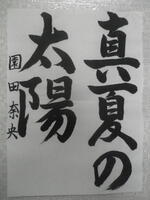 真夏の
太陽
園田奈央